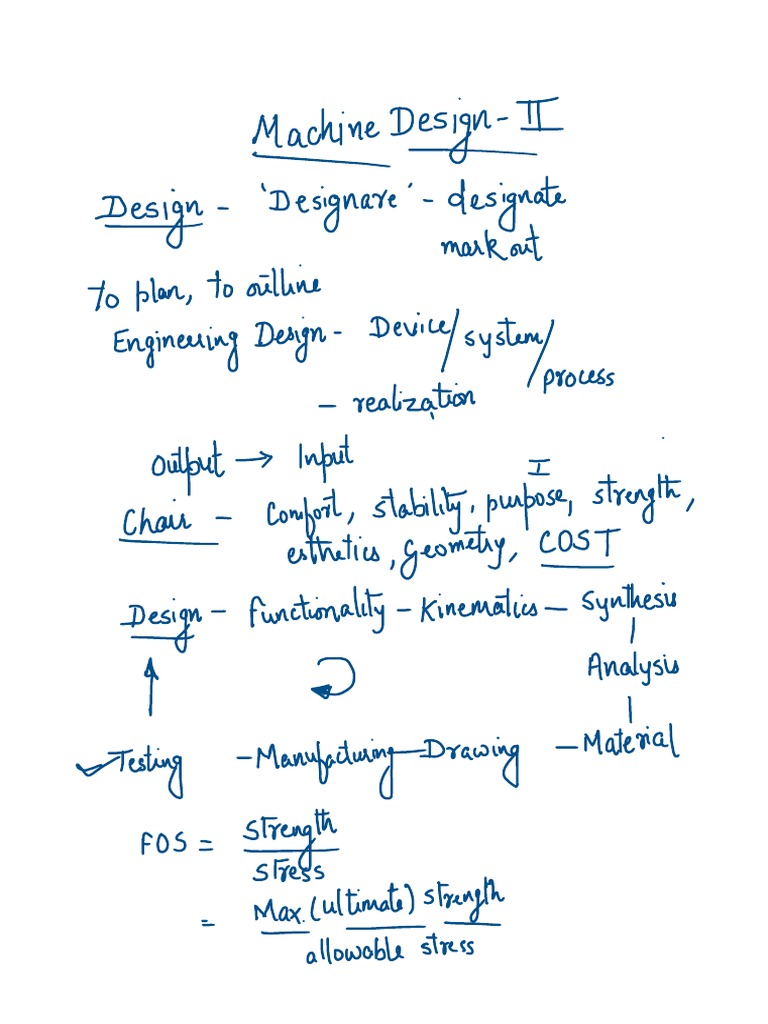 Machine Design - II
Design - 'Designare' - designate
mark out
To plan, to outline
Engineering Design - Device/system/
process
- realization
Output → Input
I
Chair - Comfort, stability, purpose, strength,
esthetics, Geometry, COST
Design - functionality - Kinematics - Synthesis
Analysis
Testing - Manufacturing - Drawing - Material
FOS = Strength
stress
= Max. (ultimate) strength
allowable stress